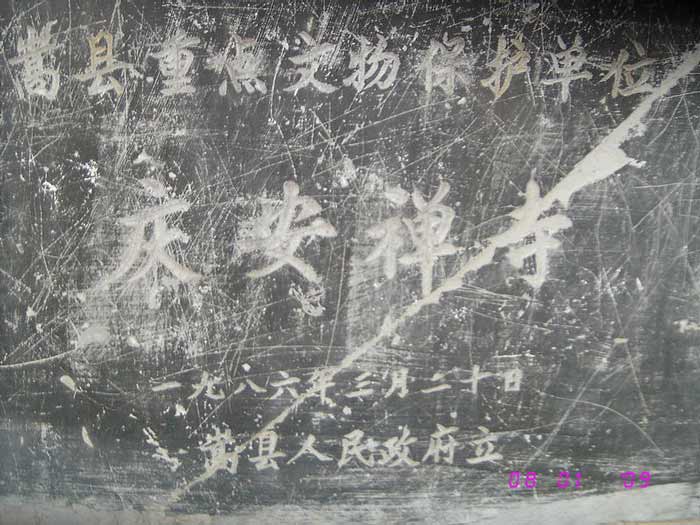 嵩县重点文物保护单位
庆安禅寺
一九八六年三月二十日
嵩县人民政府立
08 01 '09